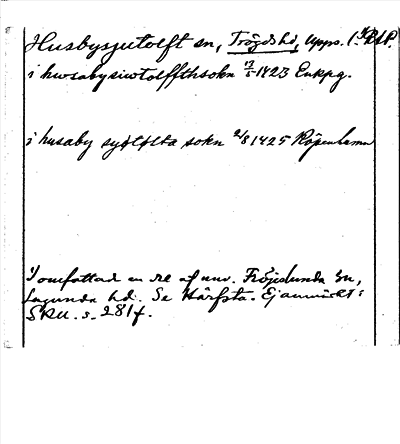 Husbysjutolft sn, Trögds hd, Upps. l.
i hwsabysiwtolffthsokn 1423 Enkpg.
i husaby syøtølta sokn 2/8 1425 Köpenhamn
omfattad en del af nuv. Fröjeslunda sn,
Lagunda hd. Se Härfsta. Ej anmärkt:
SRU. s. 281 f.